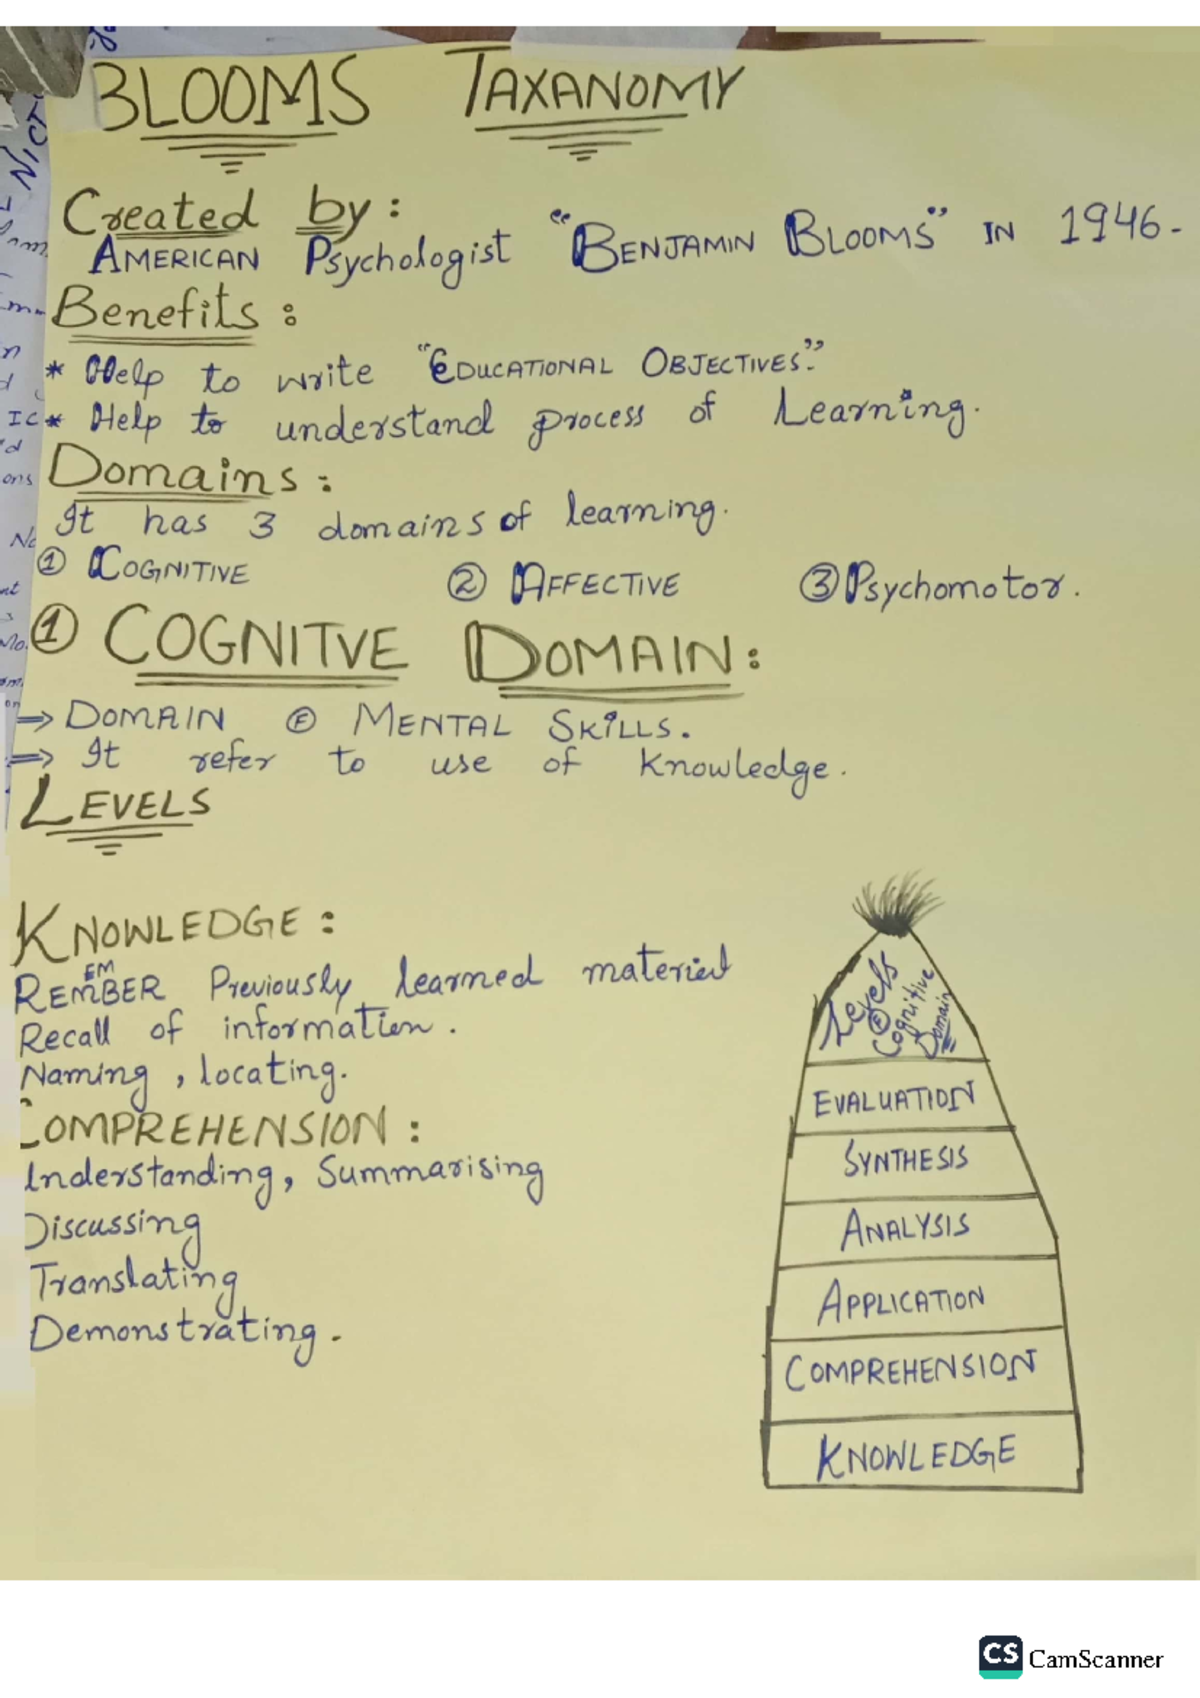 BLOOMS TAXANOMY
Created by:
AMERICAN Psychologist "BENJAMIN BLOOMS" IN 1946.
Benefits:
* Help to write "EDUCATIONAL OBJECTIVES."
* Help to understand process of Learning.
Domains:
It has 3 domains of learning.
① COGNITIVE ② AFFECTIVE ③ Psychomotor.
① COGNITVE DOMAIN:
⇒ DOMAIN Ⓔ MENTAL SKILLS.
⇒ It refer to use of knowledge.
LEVELS
KNOWLEDGE:
REMEMBER Previously learned material
Recall of information.
Naming, locating.
COMPREHENSION:
Understanding, Summarising
Discussing
Translating
Demonstrating.
Levels
Ⓔ
Cognitive
Domain
EVALUATION
SYNTHESIS
ANALYSIS
APPLICATION
COMPREHENSION
KNOWLEDGE
CS CamScanner